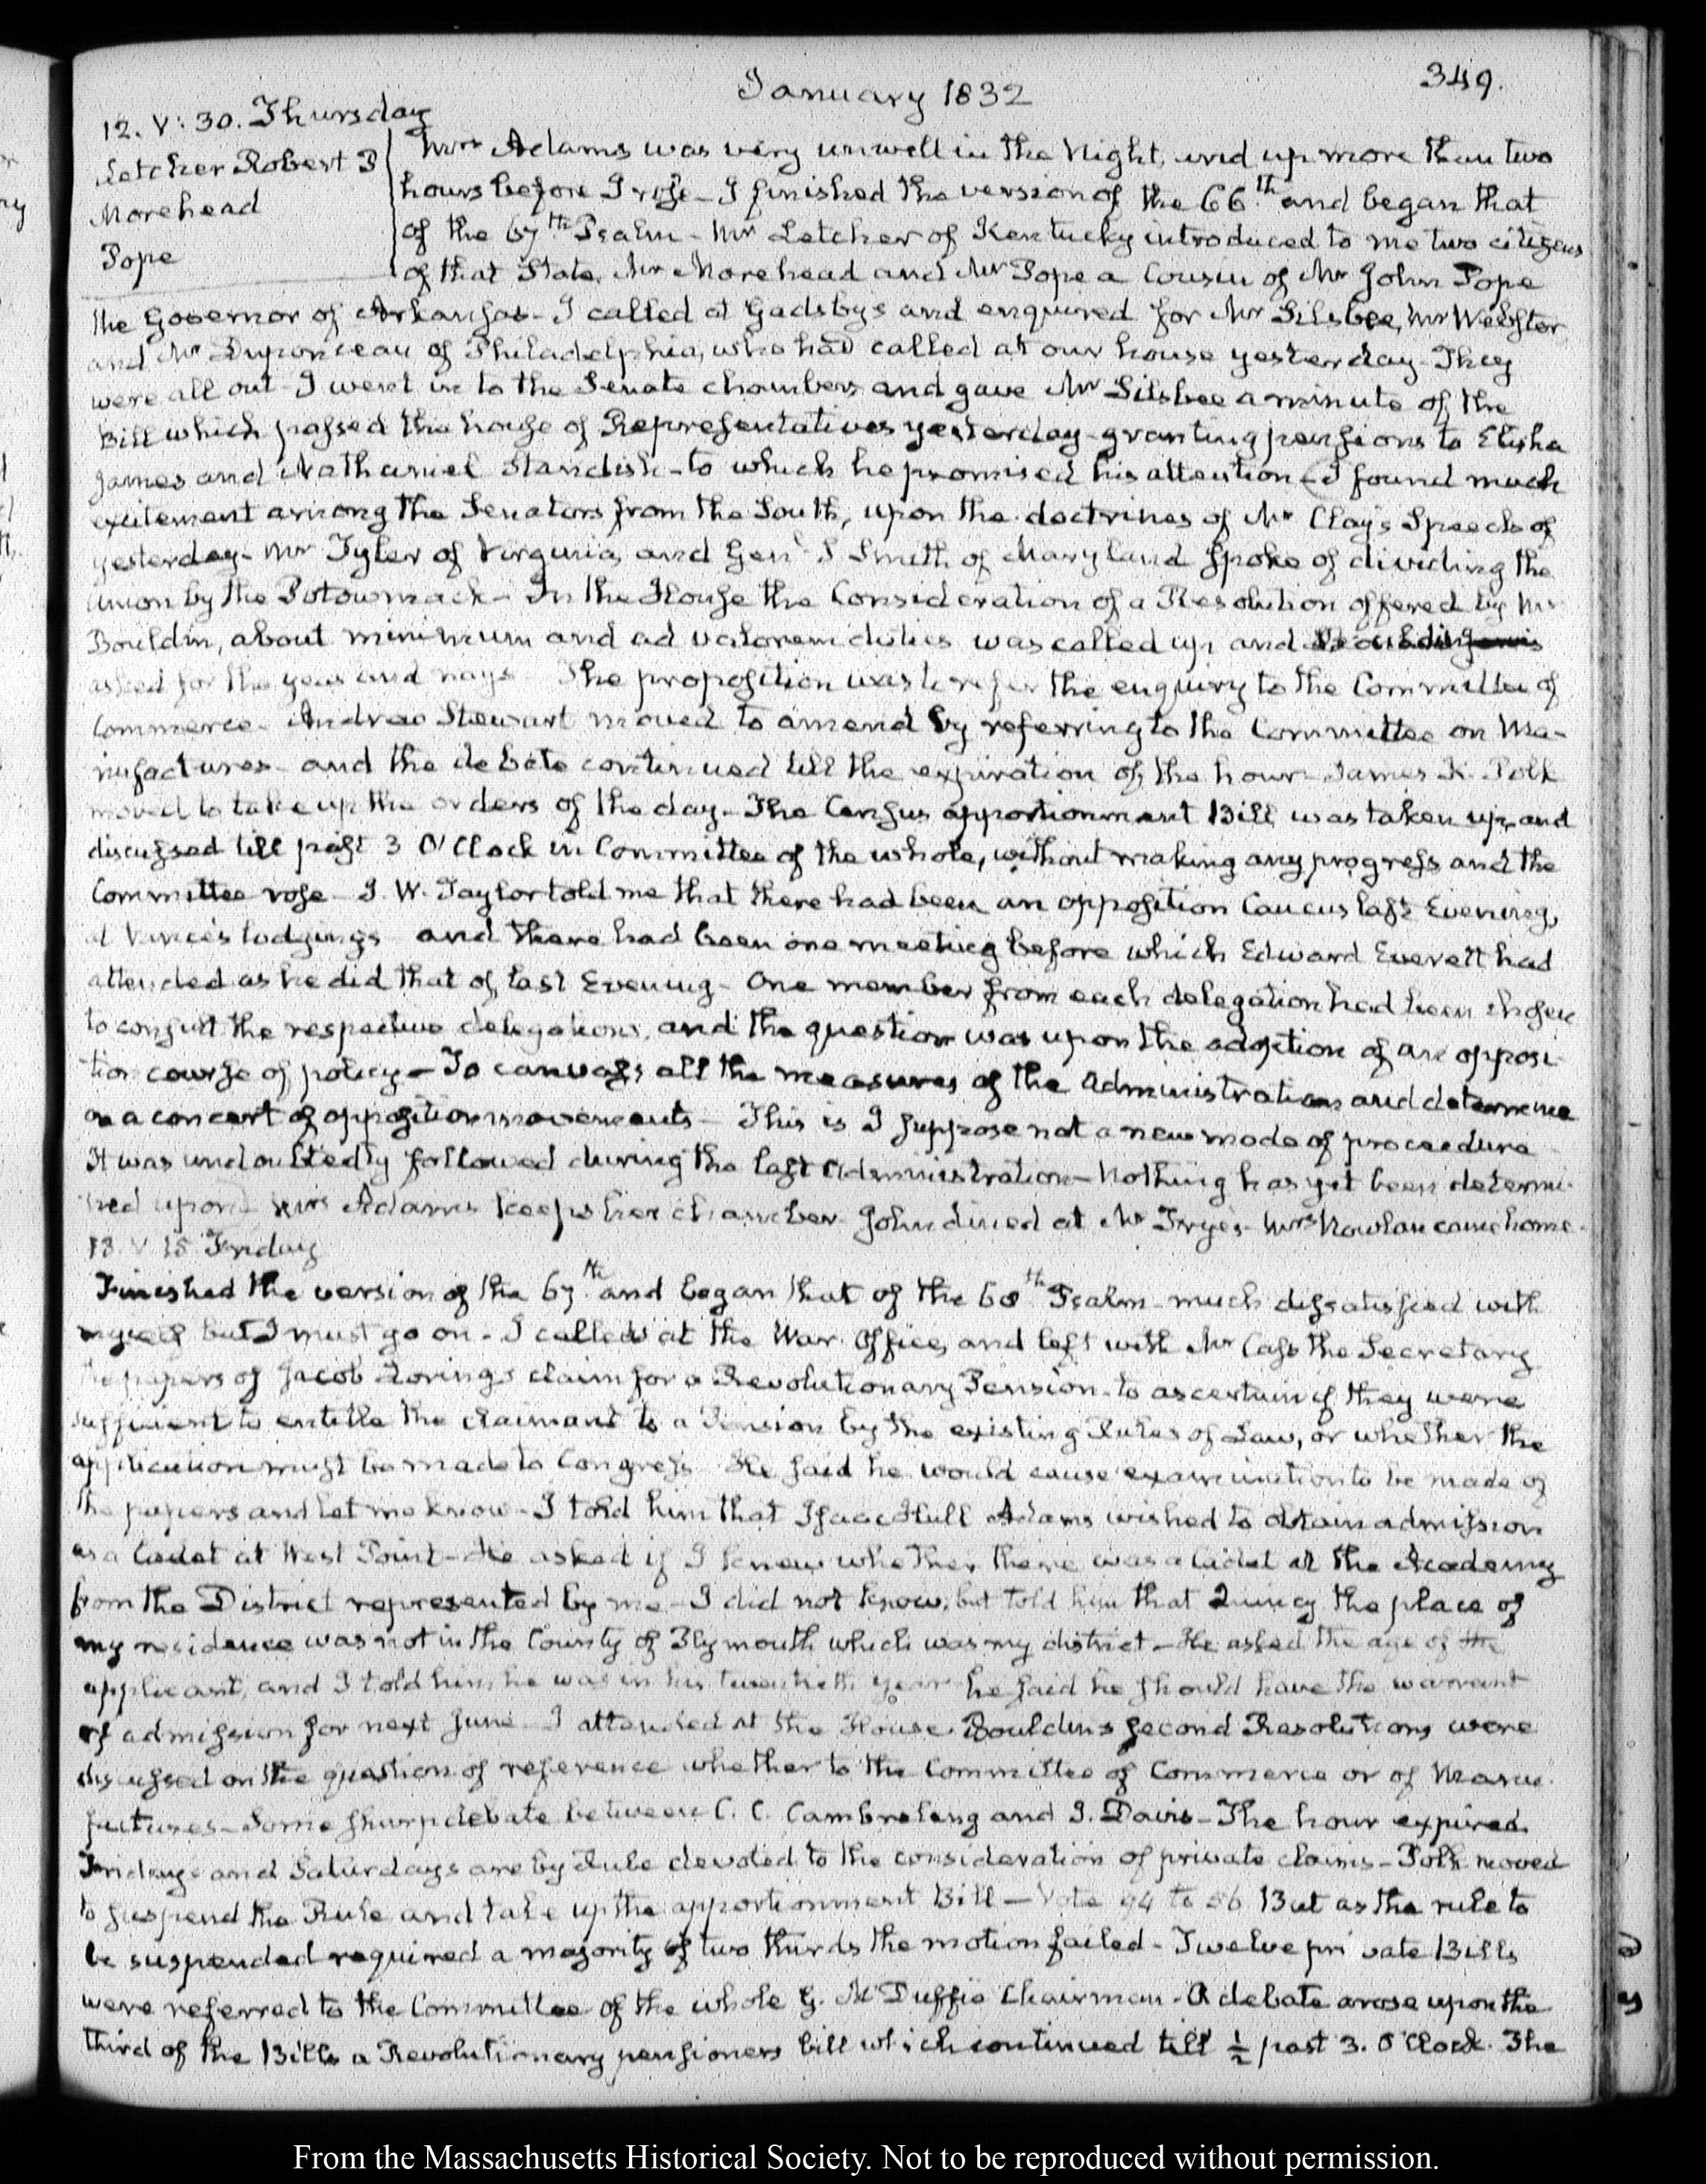 January 1832
349.
12. V: 30. Thursday
Letcher Robert P
Morehead
Pope
Mrs Adams was very unwell in the Night, and up more than two
hours before I rose - I finished the version of the 66th and began that
of the 67th Psalm - Mr Letcher of Kentucky introduced to me two citizens
of that State, Mr Morehead and Mr Pope a Cousin of Mr John Pope
the Governor of Arkansas - I called at Gadsby's and enquired for Mr Silsbee, Mr Webster
and Mr Duponceau of Philadelphia, who had called at our house yesterday - They
were all out - I went in to the Senate chamber, and gave Mr Silsbee a minute of the
Bill which passed the house of Representatives yesterday - granting pensions to Elisha
James and Nathaniel Standish - to which he promised his attention - I found much
excitement among the Senators from the South, upon the doctrines of Mr Clay's Speech of
yesterday - Mr Tyler of Virginia, and Genl S Smith of Maryland spoke of dividing the
Union by the Potowmack - In the House the Consideration of a Resolution offered by Mr
Bouldin, about minimum and ad valorem duties was called up, and
asked for the yeas and nays - The proposition was to refer the enquiry to the Committee of
Commerce - Andrew Stewart moved to amend by referring to the Committee on Ma-
nufactures - and the debate continued till the expiration of the hour - James K. Polk
moved to take up the orders of the day - The Census apportionment Bill was taken up, and
discussed till past 3 O'Clock in Committee of the whole, without making any progress and the
Committee rose - J. W. Taylor told me that there had been an opposition Caucus last Evening,
at Vance's lodgings and there had been one meeting before which Edward Everett had
attended as he did that of last Evening - One member from each delegation had been chosen
to consult the respective delegations, and the question was upon the adoption of an opposi-
tion course of policy - To canvass all the measures of the Administration and determine
on a concert of opposition movements - This is I suppose not a new mode of procedure
It was undoubtedly followed during the last Administration - Nothing has yet been determi-
ned upon - Mrs Adams keeps her chamber - John dined at Mr Frye's - Mrs Nowlan came home -
13. V 15 Friday
Finished the version of the 67th and began that of the 68th Psalm - much dissatisfied with
myself but I must go on - I called at the War Office, and left with Mr Cass the Secretary
the papers of Jacob Loring's claim for a Revolutionary Pension - to ascertain if they were
sufficient to entitle the claimant to a Pension by the existing Rules of Law, or whether the
application must be made to Congress - He said he would cause examination to be made of
the papers and let me know - I told him that Isaac Hull Adams wished to obtain admission
as a Cadet at West Point - He asked if I knew whether there was a Cadet at the Academy
from the District represented by me - I did not know, but told him that Quincy the place of
my residence was not in the County of Plymouth which was my district - He asked the age of the
applicant, and I told him he was in his twentieth year - he said he should have the warrant
of admission for next June - I attended at the House - Bouldin's second Resolutions were
discussed on the question of reference whether to the Committee of Commerce or of Manu-
factures - Some sharp debate between C. C. Cambreleng and J. Davis - The hour expired.
Fridays and Saturdays are by Rule devoted to the consideration of private claims - Polk moved
to suspend the Rule and take up the apportionment Bill - Vote 94 to 86 But as the rule to
be suspended required a majority of two thirds the motion failed - Twelve private Bills
were referred to the Committee of the whole G. McDuffie Chairman - A debate arose upon the
third of the Bills a Revolutionary pensioners bill which continued till ½ past 3. O'Clock. The
From the Massachusetts Historical Society. Not to be reproduced without permission.